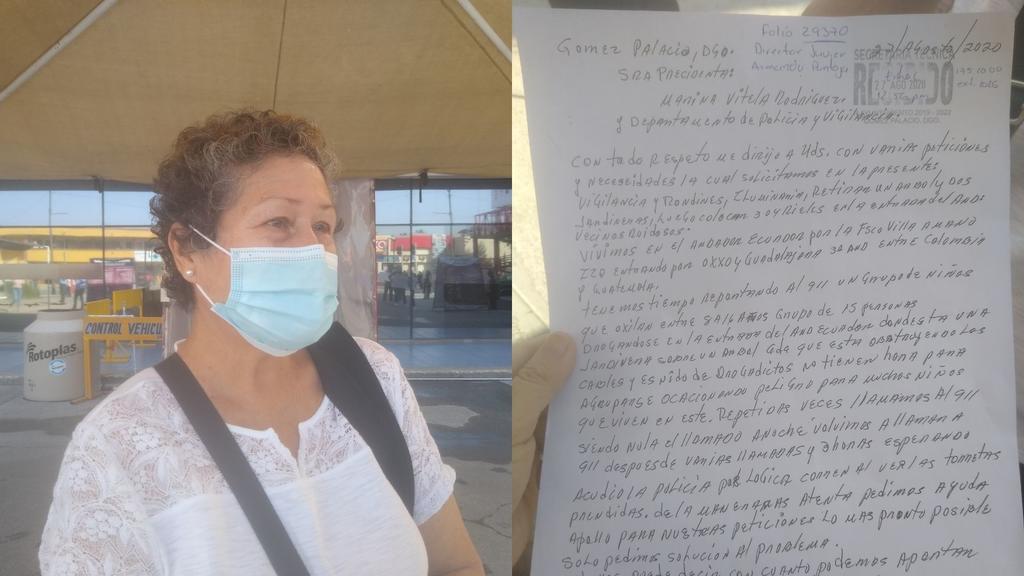 Rotoplas
CONTROL VEHICU
Folio 29370
Director Javier
Armando Pantoja
GOMEZ PALACIO, DGO. 27/AGOSTO/2020
SRA PRESIDENTA:
SECRETARÍA TÉCNICA
27 AGO 2020
175 10 00
MARINA VITELA RODRIGUEZ.
Y DEPARTAMENTO DE POLICIA Y VIGILANCIA.
CON TODO RESPETO ME DIRIJO A Uds. CON VARIAS PETICIONES
Y NECESIDADES LA CUAL SOLICITAMOS EN LA PRESENTE,
VIGILANCIA Y RONDINES, ILUMINARIA, RETIRAR UN ARBOL Y DOS
JARDINERAS, LUEGO COLOCAR 3 O 4 RIELES EN LA ENTRADA DEL AND.
VECINOS RUIDOSOS.
VIVIMOS EN EL ANDADOR ECUADOR POR LA FSCO VILLA A MANO
IZQ ENTRANDO POR OXXO Y GUADALAJARA 3ER AND ENTRE COLOMBIA
Y GUATEMALA.
TENEMOS TIEMPO REPORTANDO AL 911 UN GRUPO DE NIÑOS
QUE OXILAN ENTRE 8 A 16 AÑOS GRUPO DE 15 PERSONAS
DROGANDOSE EN LA ENTRADA DEL AND ECUADOR DONDE ESTA UNA
JARDINERA SOBRE UN ARBOL Gde QUE ESTA OBSTRUYENDO LOS
CABLES Y ES NIDO DE DROGADICTOS NO TIENEN HORA PARA
AGRUPARSE OCACIONANDO PELIGRO PARA MUCHOS NIÑOS
QUE VIVEN EN ESTE. REPETIDAS VECES LLAMAMOS AL 911
SIENDO NULA EL LLAMADO ANOCHE VOLVIMOS A LLAMAR A
911 DESPUES DE VARIAS LLAMADAS Y 2 HORAS ESPERANDO
ACUDIO LA POLICIA POR LOGICA CORREN AL VER LAS TORRETAS
PRENDIDAS. DE LA MANERA MAS ATENTA PEDIMOS AYUDA
APOLLO PARA NUESTRAS PETICIONES LO MAS PRONTO POSIBLE
SOLO PEDIMOS SOLUCION AL PROBLEMA.
DECIR CON CUANTO PODEMOS APORTAR